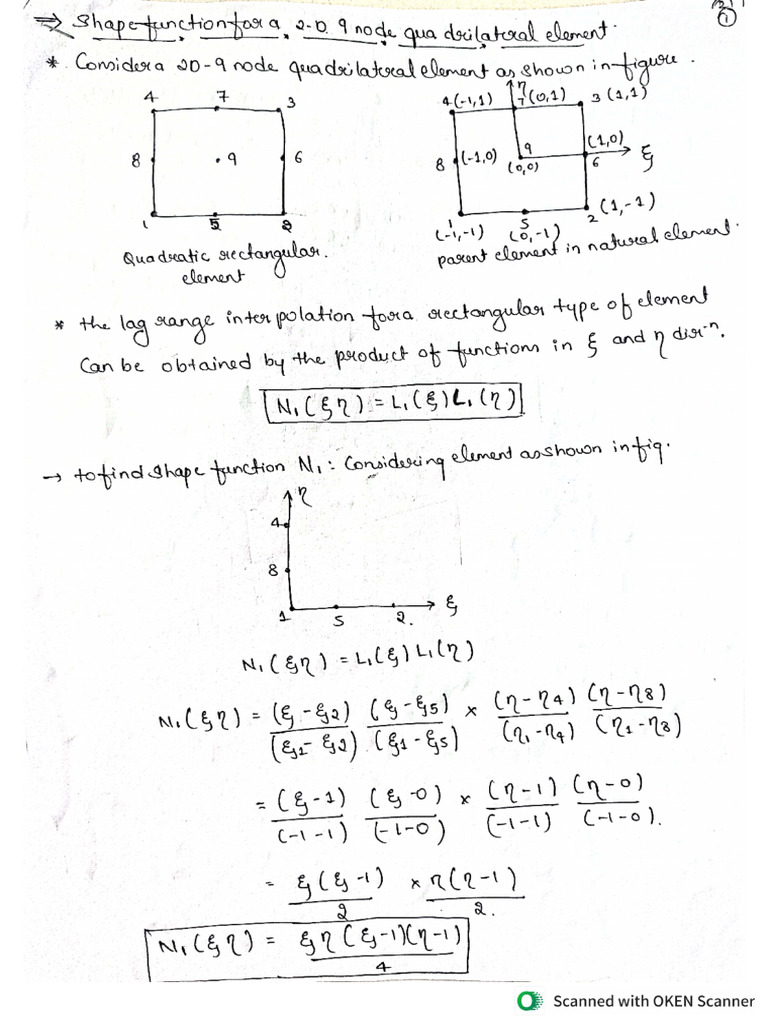 ⇒ Shape function for a 2-D 9 node quadrilateral element.
①
* Consider a 2D-9 node quadrilateral element as shown in figure.
4 7 3
8 9 6
1 5 2
Quadratic rectangular
element
η
4(-1,1) 7(0,1) 3(1,1)
8 (-1,0) 9 (0,0) (1,0) 6 ξ
1 (-1,-1) 5 (0,-1) 2 (1,-1)
parent element in natural element.
* the lag range interpolation for a rectangular type of element
Can be obtained by the product of functions in ξ and η dirⁿ.
N₁(ξη) = L₁(ξ)L₁(η)
→ to find shape function N₁ : Considering element as shown in fig.
η
4
8
1 5 2. ξ
N₁(ξη) = L₁(ξ)L₁(η)
N₁(ξη) = (ξ-ξ2)/(ξ1-ξ2) (ξ-ξ5)/(ξ1-ξ5) × (η-η4)/(η1-η4) (η-η8)/(η1-η8)
= (ξ-1)/(-1-1) (ξ-0)/(-1-0) × (η-1)/(-1-1) (η-0)/(-1-0).
= ξ(ξ-1)/2 × η(η-1)/2.
N₁(ξη) = ξη(ξ-1)(η-1)/4
Scanned with OKEN Scanner